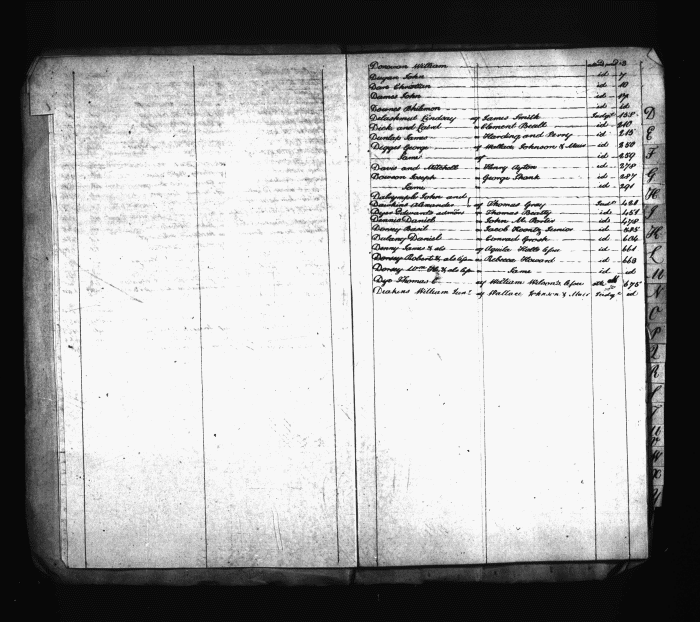 Donovan William 3
Dugan John id 7
Dorr Christian id 10
Dames John id
Downes Philemon id id
Delashmut Lindsay of James Smith Judgt 158
Dick and Cassel Clement Beall id 210
Dunlop James Harding and Perry id 215
Digges George of Wallace Johnson & Muir id 250
Same of id 259
Davis and Mitchell Henry Ayton id 279
Dawson Joseph George Shank id 287
Same id 291
Dalrymple John and
Dawkins Alexander of Thomas Gray
Dyer Edwards admors Thomas Beatty id 451
Dennis Daniel John M. id 478
Dorsey Basil Jacob Koontz Junior id
Dulany Daniel Conrad Grosh id
Denny James & als Aquila Halls Exrs id 661
Dorsey Robert & als Exrs Rebecca Howard id 663
Dorsey Wm H. & als Exrs Same id id
Dye Thomas of William Wilson's Exrs 675
Deakins William Junr of Wallace Johnson & Muir Judgt id
D
E
F
G
H
I
K
L
M
N
O
P
Q
R
S
T
W
X
Y